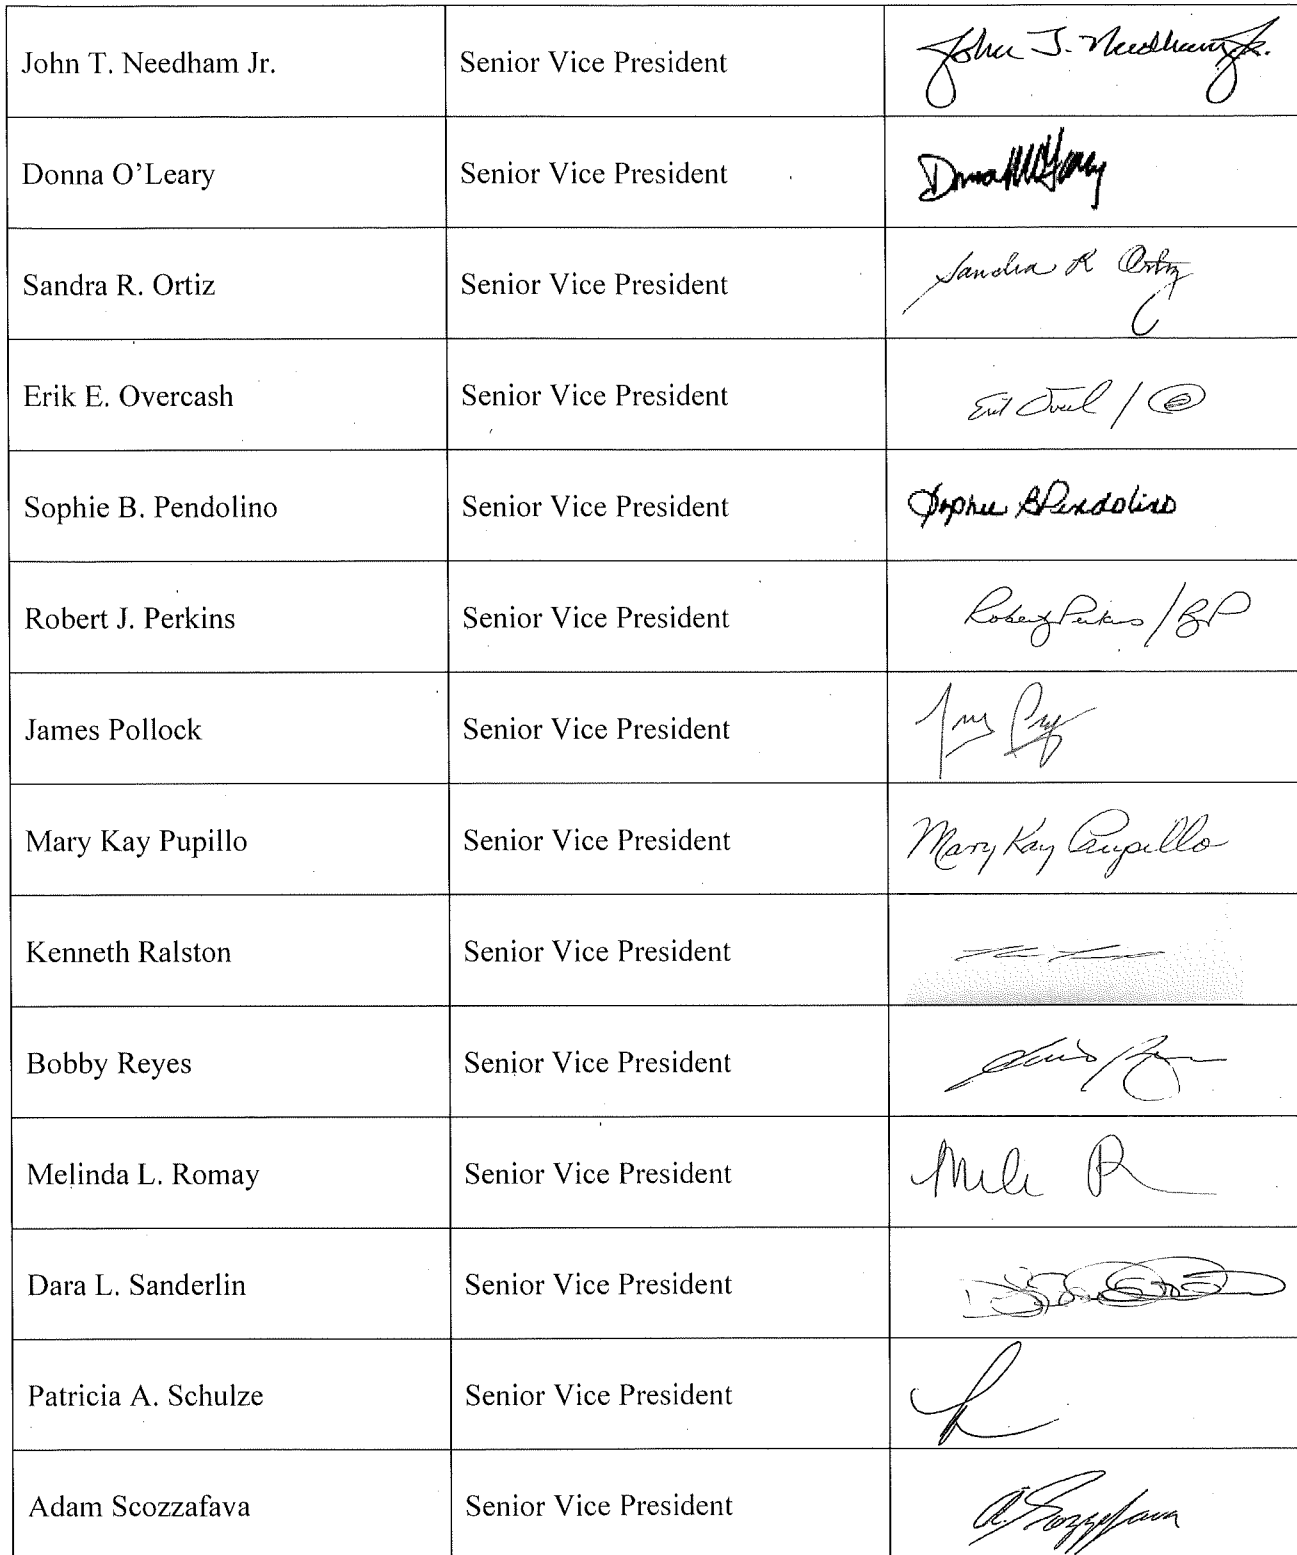 John T. Needham Jr. Senior Vice President John T. Needham Jr.
Donna O'Leary Senior Vice President
Sandra R. Ortiz Senior Vice President Sandra R Ortiz
Erik E. Overcash Senior Vice President
Sophie B. Pendolino Senior Vice President Sophie B Pendolino
Robert J. Perkins Senior Vice President Robert Perkins / RP
James Pollock Senior Vice President
Mary Kay Pupillo Senior Vice President Mary Kay Pupillo
Kenneth Ralston Senior Vice President
Bobby Reyes Senior Vice President
Melinda L. Romay Senior Vice President
Dara L. Sanderlin Senior Vice President
Patricia A. Schulze Senior Vice President
Adam Scozzafava Senior Vice President A. Scozzafava